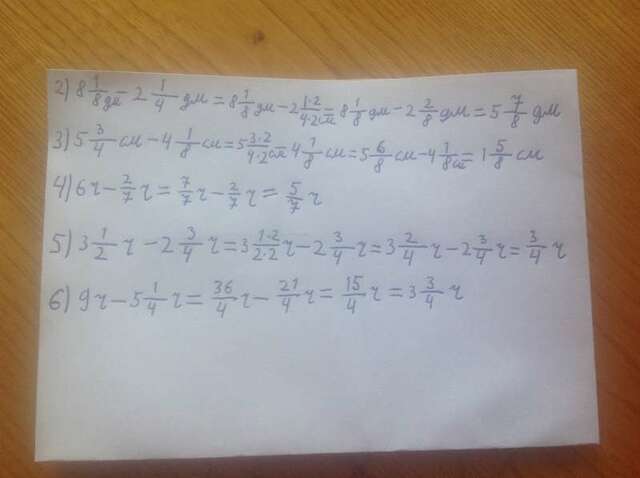 2) 8 1/8 дм - 2 1/4 дм = 8 1/8 дм - 2 1·2/4·2 см = 8 1/8 дм - 2 2/8 дм = 5 7/8 дм
3) 5 3/4 см - 4 1/8 см = 5 3·2/4·2 см = 4 1/8 см = 5 6/8 см - 4 1/8 см = 1 5/8 см
4) 6 ч - 2/7 ч = 7/7 ч - 2/7 ч = 5/7 ч
5) 3 1/2 ч - 2 3/4 ч = 3 1·2/2·2 ч - 2 3/4 ч = 3 2/4 ч - 2 3/4 ч = 3/4 ч
6) 9 ч - 5 1/4 ч = 36/4 ч - 21/4 ч = 15/4 ч = 3 3/4 ч